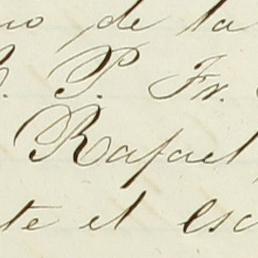 de la
P. Fr.
Rafael
te el Esc